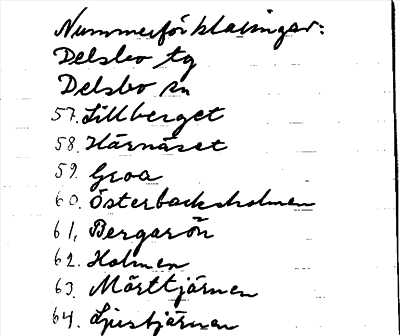 Nummerförklaringar:
Delsbo tg
Delsbo sn
57. Lillberget
58. Härnäset
59. Groa
60. Österbacksholmen
61. Bergarön
62. Holmen
63. Mörttjärnen
64. Ljustjärnen